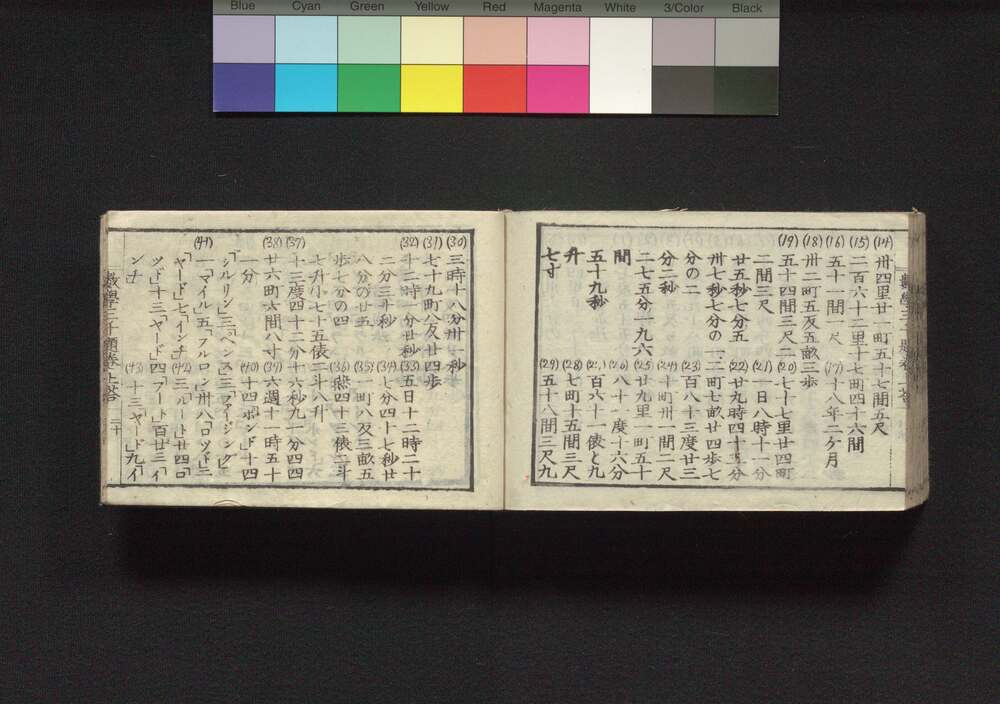 Blue Cyan Green Yellow Red Magenta White 3/Color Black
(14) 卅四里廿一町五十七間五尺
(15) 二百六十二里十七町四十六間
(16) 五十一間一尺 (17) 十八年二ケ月
(18) 卅二町五反五畝三歩
(19) 五十四間三尺二 (20) 七十七里廿四町
二間三尺 (21) 一日八時十一分
廿五秒七分五 (22) 廿九時四十三分
卅七秒七分の一 二町七畝廿四歩七
分の二 (23) 百八十三度廿三
分二秒 (24) 十町卅一間二尺
二七五分一九六 (25) 廿九里一町五十
間 (26) 八十一度十六分
五十九秒 百六十一俵と九
升 (28) 七町十五間三尺
七寸 (29) 五十八間三尺九
(30) 三時十八分卅一秒
(31) 七十九町八反廿四歩
(32) 十二時一分廿秒 (33) 五日十二時二十
二分三分秒 (34) 七分四十七秒廿
八分の廿五 (35) 一町八反三畝五
歩七分の四 (36) 四十三俵二斗
七升小七十五俵二斗八升
(37) 十三度四十二分十六秒九一分四四
(38) 廿六町六間八寸 (39) 六週十一時五十
一分 (40) 十四「ポンド」十四
「シルリン」三「ペンス」三「フアージング」
(41) 一「マイル」五「フルロン」卅八「ロツド」三
「ヤード」七「インチ」 (42) 三「ルート」廿四「ロ
ツド」十三「ヤード」四「フート」百廿三「イ
ンチ」 (43) 十三「ヤード」九「イ
數學三千題卷上答 二十